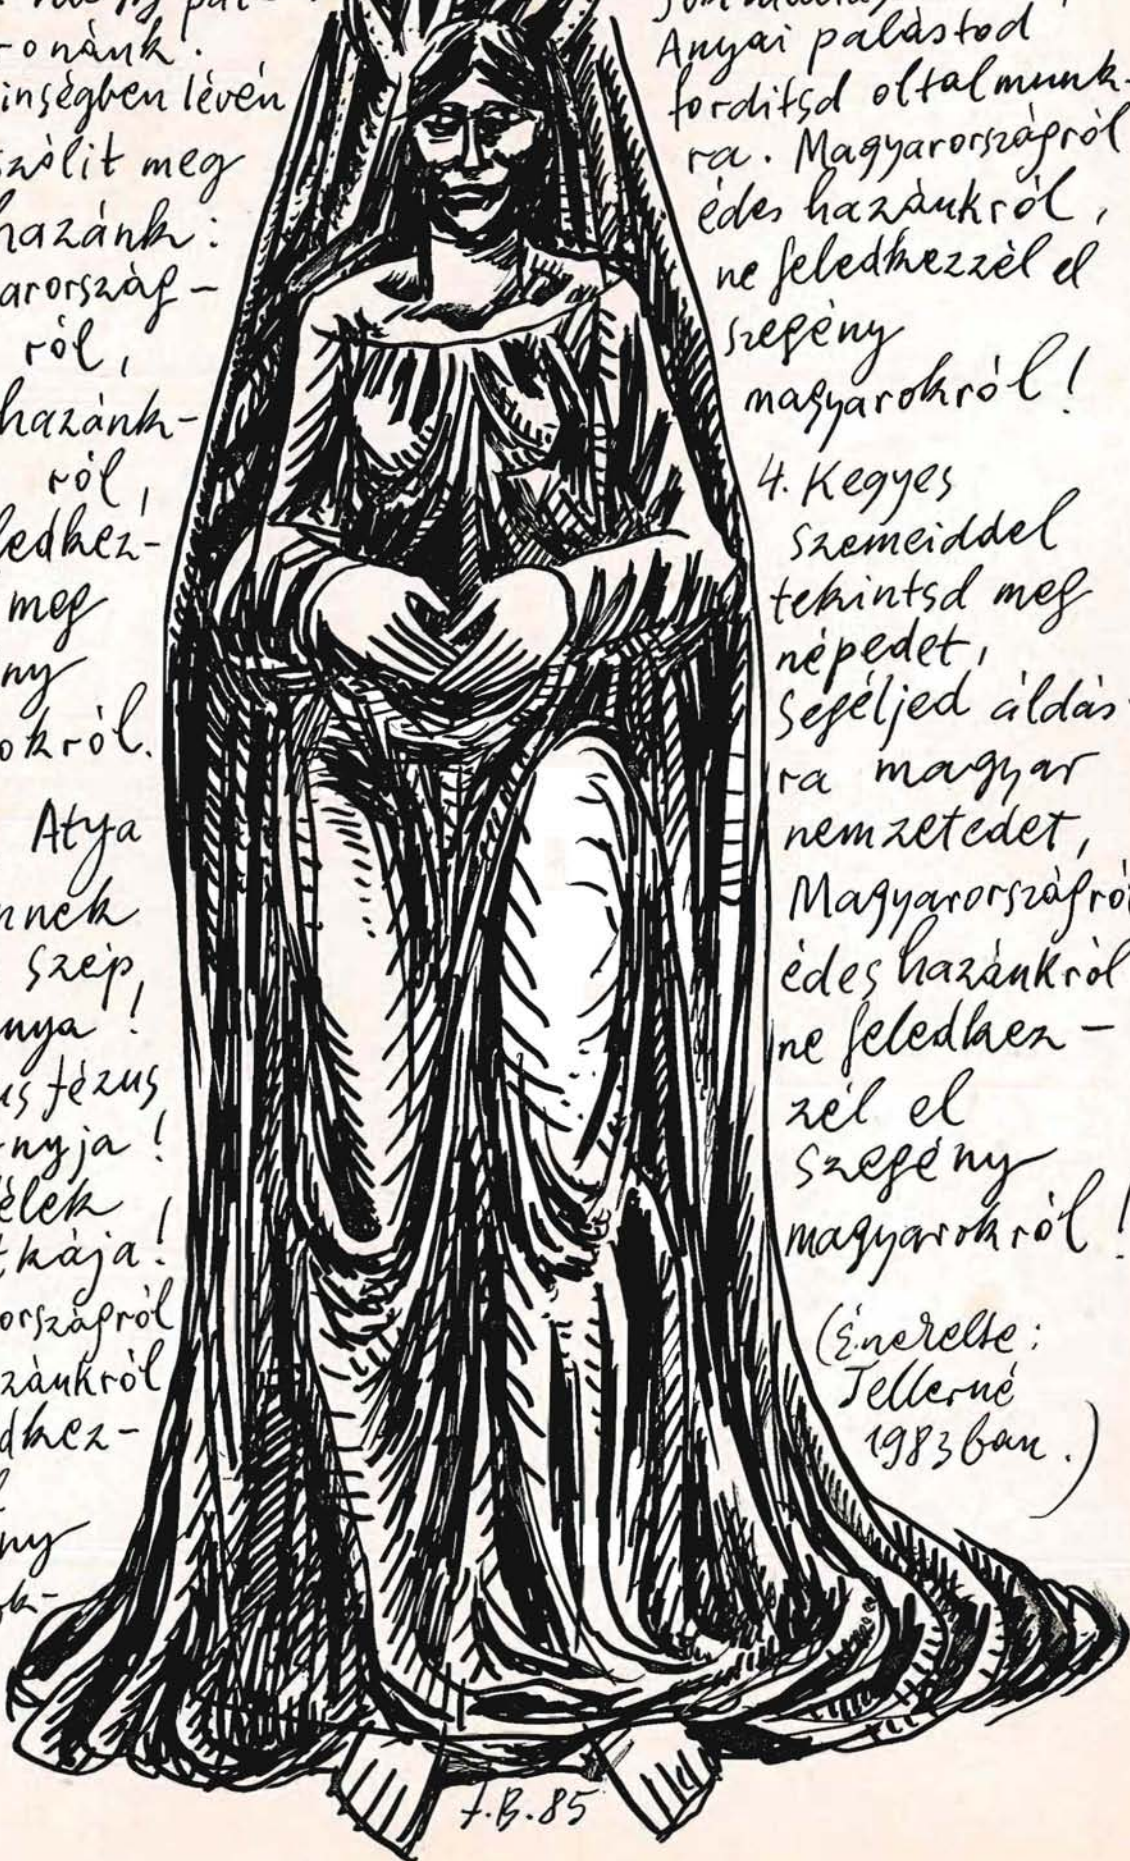 -onánk.
inségben lévén
szólit meg
hazánk:
arország-
ról,
hazánk-
ról,
ledkez-
meg
ny
okról.
Atya
nnek
szép,
nya!
us Jézus
nyja!
élek
tkája!
országról
zánkról
dkez-
ny
ok-
Anyai palástod
forditsd oltalmunk-
ra. Magyarországról
édes hazánkról,
ne feledkezzél el
szegény
magyarokról!
4. Kegyes
szemeiddel
tekintsd meg
népedet,
Segéljed áldás-
ra magyar
nemzetedet,
Magyarországról
édes hazánkról
ne feledkez-
zél el
szegény
magyarokról!
(Énekelte:
Tellerné
1983ban.)
f.B.85